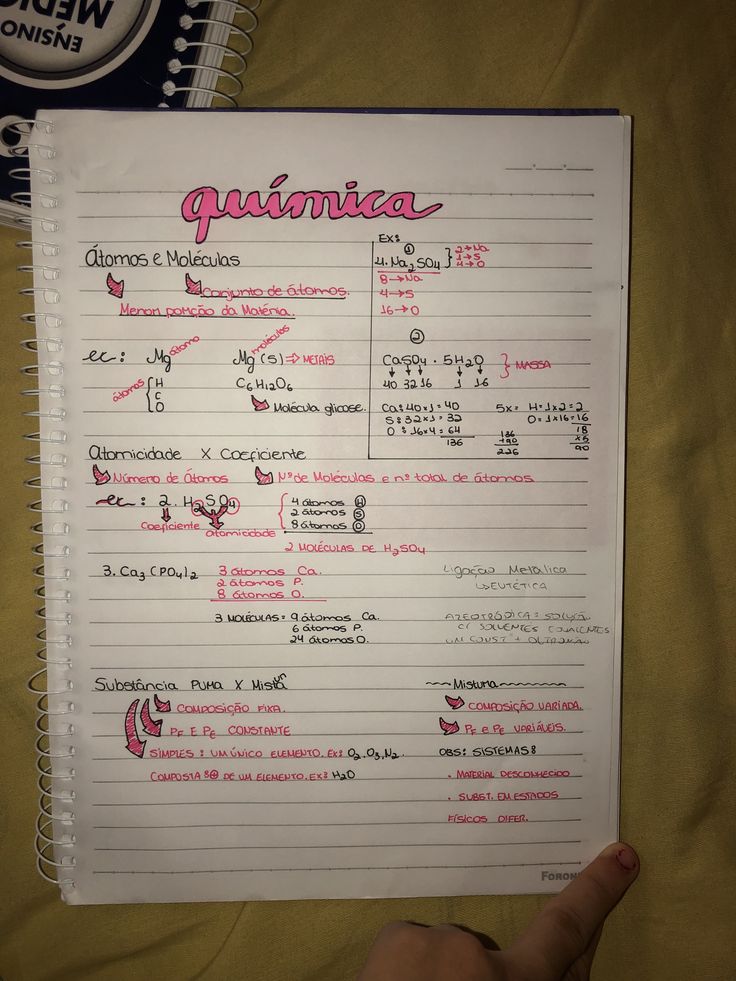 ENSINO
MÉDIO
química
Átomos e Moléculas
Conjunto de átomos.
Menor porção da Matéria.
ec: Mg átomo
Mg (s) ⇒ METAIS
moléculas
átomos { H
C
O
C6H12O6
Molécula glicose.
Ex:
①
4. Na2SO4 } 2→Na
1→S
4→O
8→Na
4→S
16→O
②
CaSO4 · 5H2O } MASSA
40 32 16 1 16
Ca: 40x1 = 40
S: 32x1 = 32
O: 16x4 = 64
136
5x= H=1x2=2
O=1x16=16
18
x5
90
136
+90
226
Atomicidade X Coeficiente
Número de Átomos
Nº de Moléculas e nº total de átomos
ec: 2. H2SO4
Coeficiente
atomicidade
4 átomos H
2 átomos S
8 átomos O
2 MOLÉCULAS DE H2SO4
3. Ca3(PO4)2
3 átomos Ca.
2 átomos P.
8 átomos O.
3 MOLÉCULAS = 9 átomos Ca.
6 átomos P.
24 átomos O.
Ligação Metálica
↳ EUTÉTICA
AZEOTRÓPICA = SOLUÇÃO
C/ SOLVENTES
Substância PURA X Mistura
COMPOSIÇÃO FIXA.
PF E PE CONSTANTE
SIMPLES: UM ÚNICO ELEMENTO. Ex: O2, O3, N2.
COMPOSTA: ⊕ DE UM ELEMENTO. EX: H2O
Mistura
COMPOSIÇÃO VARIADA.
PF e PE VARIÁVEIS.
OBS: SISTEMAS:
. MATERIAL DESCONHECIDO
. SUBST. EM ESTADOS
FÍSICOS DIFER.
FORONI